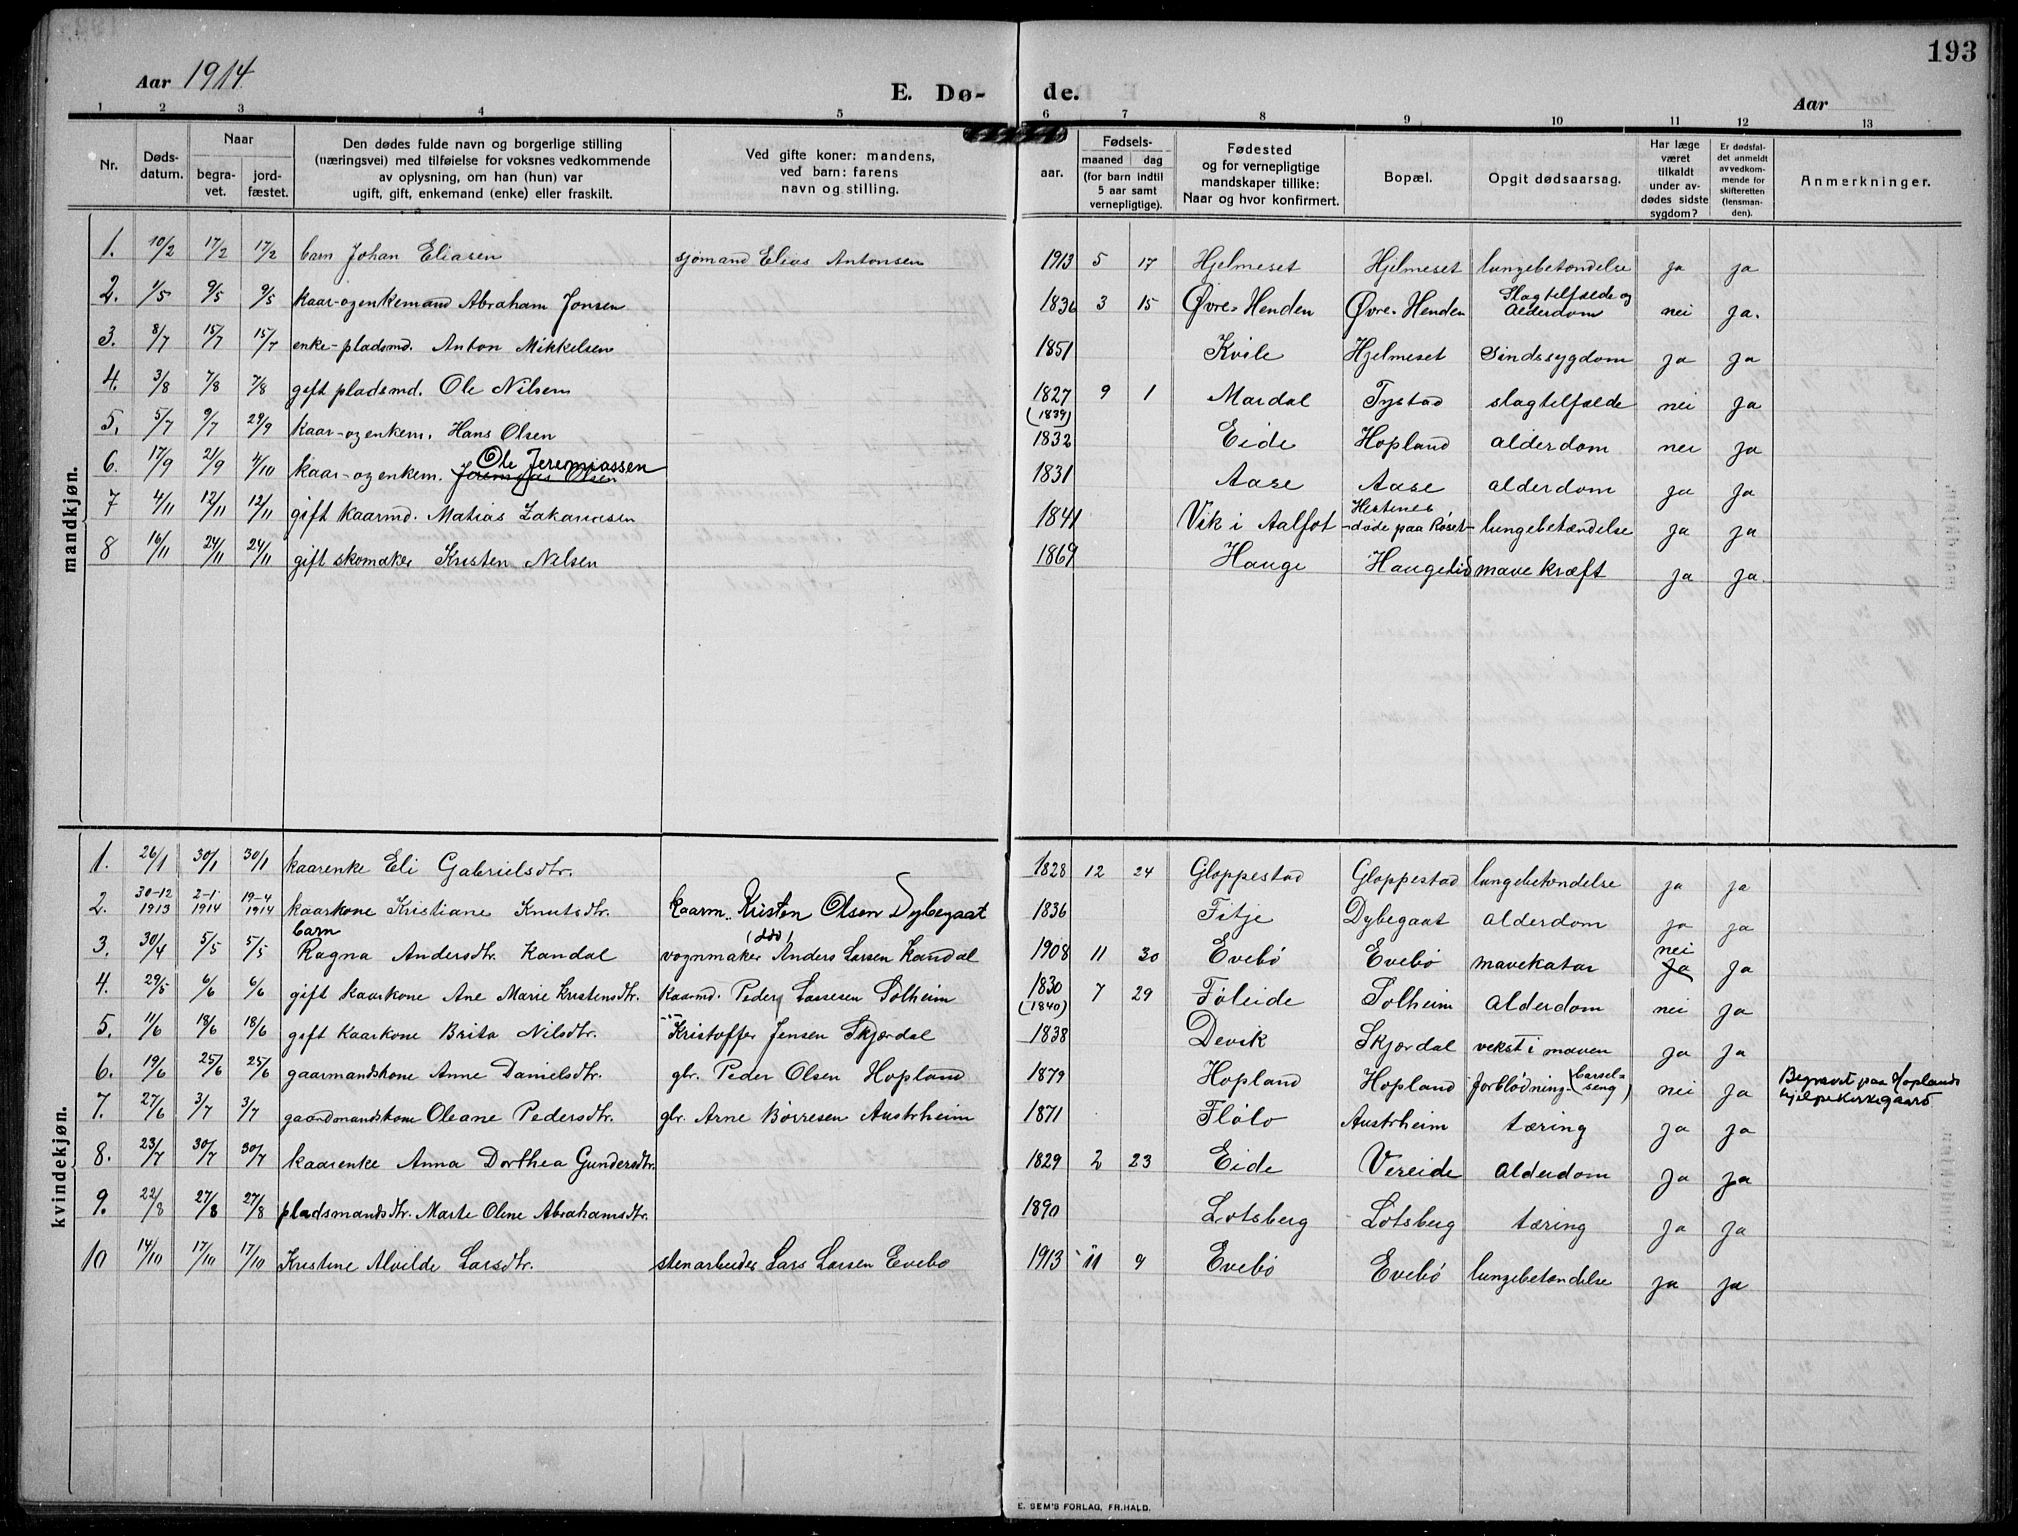 Aar 1914
E. Dø-
de.
193
Aar
1 2 3 4 5 6 7 8 9 10 11 12 13
Nr.
Døds-
datum.
Naar
begra-
vet.
jord-
fæstet.
Den dødes fulde navn og borgerlige stilling
(næringsvei) med tilføielse for voksnes vedkommende
av oplysning, om han (hun) var
ugift, gift, enkemand (enke) eller fraskilt.
Ved gifte koner: mandens,
ved barn: farens
navn og stilling.
aar.
Fødsels-
maaned dag
(for barn indtil
5 aar samt
vernepligtige).
Fødested
og for vernepligtige
mandskaper tillike:
Naar og hvor konfirmert.
Bopæl.
Opgit dødsaarsag.
Har læge
været
tilkaldt
under av-
dødes sidste
sygdom?
Er dødsfal-
det anmeldt
av vedkom-
mende for
skifteretten
(lensman-
den).
Anmerkninger.
mandkjøn.
1. 10/2 17/2 17/2 barn Johan Eliasen sjømand Elias Antonsen 1913 5 17 Hjelmeset Hjelmeset lungebetændelse ja ja
2. 1/5 9/5 9/5 kaar- og enkemand Abraham Jonsen 1836 3 15 Øvre-Henden Øvre-Henden Slagtilfælde og Alderdom nei ja.
3. 8/7 15/7 15/7 enke-pladsmd. Anton Mikkelsen 1851 Kvile Hjelmeset Sindssygdom ja ja
4. 3/8 7/8 7/8 gift pladsmd. Ole Nilsen 1827 (1839) 9 1 Mardal Tystad slagtilfælde nei ja
5. 5/7 9/7 29/9 kaar- og enkem. Hans Olsen 1832 Eide Hopland alderdom nei ja
6. 17/9 21/9 4/10 kaar- og enkem. Jeremias Olsen Ole Jeremiassen 1831 Aase Aase alderdom ja ja
7 4/11 12/11 12/11 gift kaarmd. Matias Zakariasen 1841 Vik i Aalfot Hestenes -døde paa Røset- lungebetændelse ja ja
8 16/11 24/11 24/11 gift skomaker Kristen Nilsen 1869 Hauge Haugelid mavekræft ja ja.
kvindekjøn.
1. 26/1 30/1 30/1 kaarenke Eli Gabrielsdtr. 1828 12 24 Gloppestad Gloppestad lungebetændelse ja ja
2. 30-12 1913 2-1 1914 19-4 1914 kaarkone Kristiane Knutsdtr. kaarm. Kristen Olsen Dybegaat 1836 Fitje Dybegaat alderdom ja ja
3. 30/4 5/5 5/5 barn Ragna Andersdtr. Kandal vognmaker (død) Anders Larsen Kandal 1908 11 30 Evebø Evebø mavekatar ja nei ja
4. 29/5 6/6 6/6 gift kaarkone Ane Marie Kristensdtr. kaarmd. Peder Lassesen Solheim 1830 (1840) 7 29 Føleide Solheim alderdom nei ja
5. 11/6 18/6 18/6 gift kaarkone Brita Nilsdtr. -"- Kristoffer Jensen Skjerdal 1838 Devik Skjerdal vekst i maven ja ja
6. 19/6 25/6 25/6 gaarmandskone Anne Danielsdtr. gbr. Peder Olsen Hopland 1879 Hopland Hopland forblødning (barselseng) nei ja Begravet paa Hoplands hjelpekirkegaard
7. 27/6 3/7 3/7 gaardmandskone Oleane Pedersdtr. gbr. Arne Børresen Austrheim 1871 Fløto Austrheim tæring ja ja
8. 23/7 30/7 30/7 kaarenke Anna Dorthea Gundersdtr. 1829 2 23 Eide Vereide alderdom ja ja
9. 22/8 27/8 27/8 pladsmandsdtr. Marte Oline Abrahamsdtr. 1890 Lotsberg Lotsberg tæring ja ja
10 14/10 17/10 17/10 Kristine Alvilde Larsdtr. stenarbeider Lars Larsen Evebø 1913 11 9 Evebø Evebø lungebetændelse ja ja
E. SEM'S FORLAG, FR.HALD.